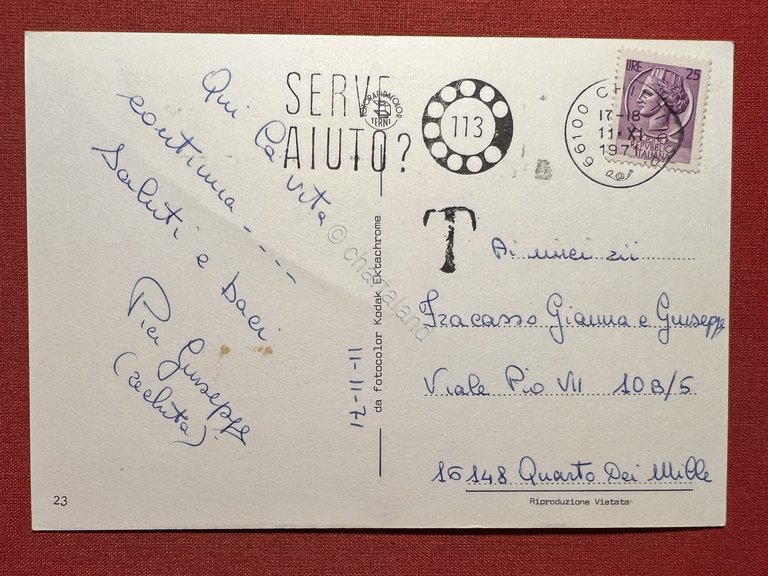 Qui la vita
continua ----
Saluti e baci
Pier Giuseppe
(recluta)
11-11-71
SERVE
AIUTO?
113
TERNI
66100 CHIETI
17-18
11·XI
1971
LIRE 25
REPUBBLICA
ITALIANA
T
Ai miei zii
Fracasso Gianna e Giuseppe
Viale Pio VII 10B/5
16148 Quarto Dei Mille
da fotocolor Kodak Ektachrome
Riproduzione Vietata
23
© charaland